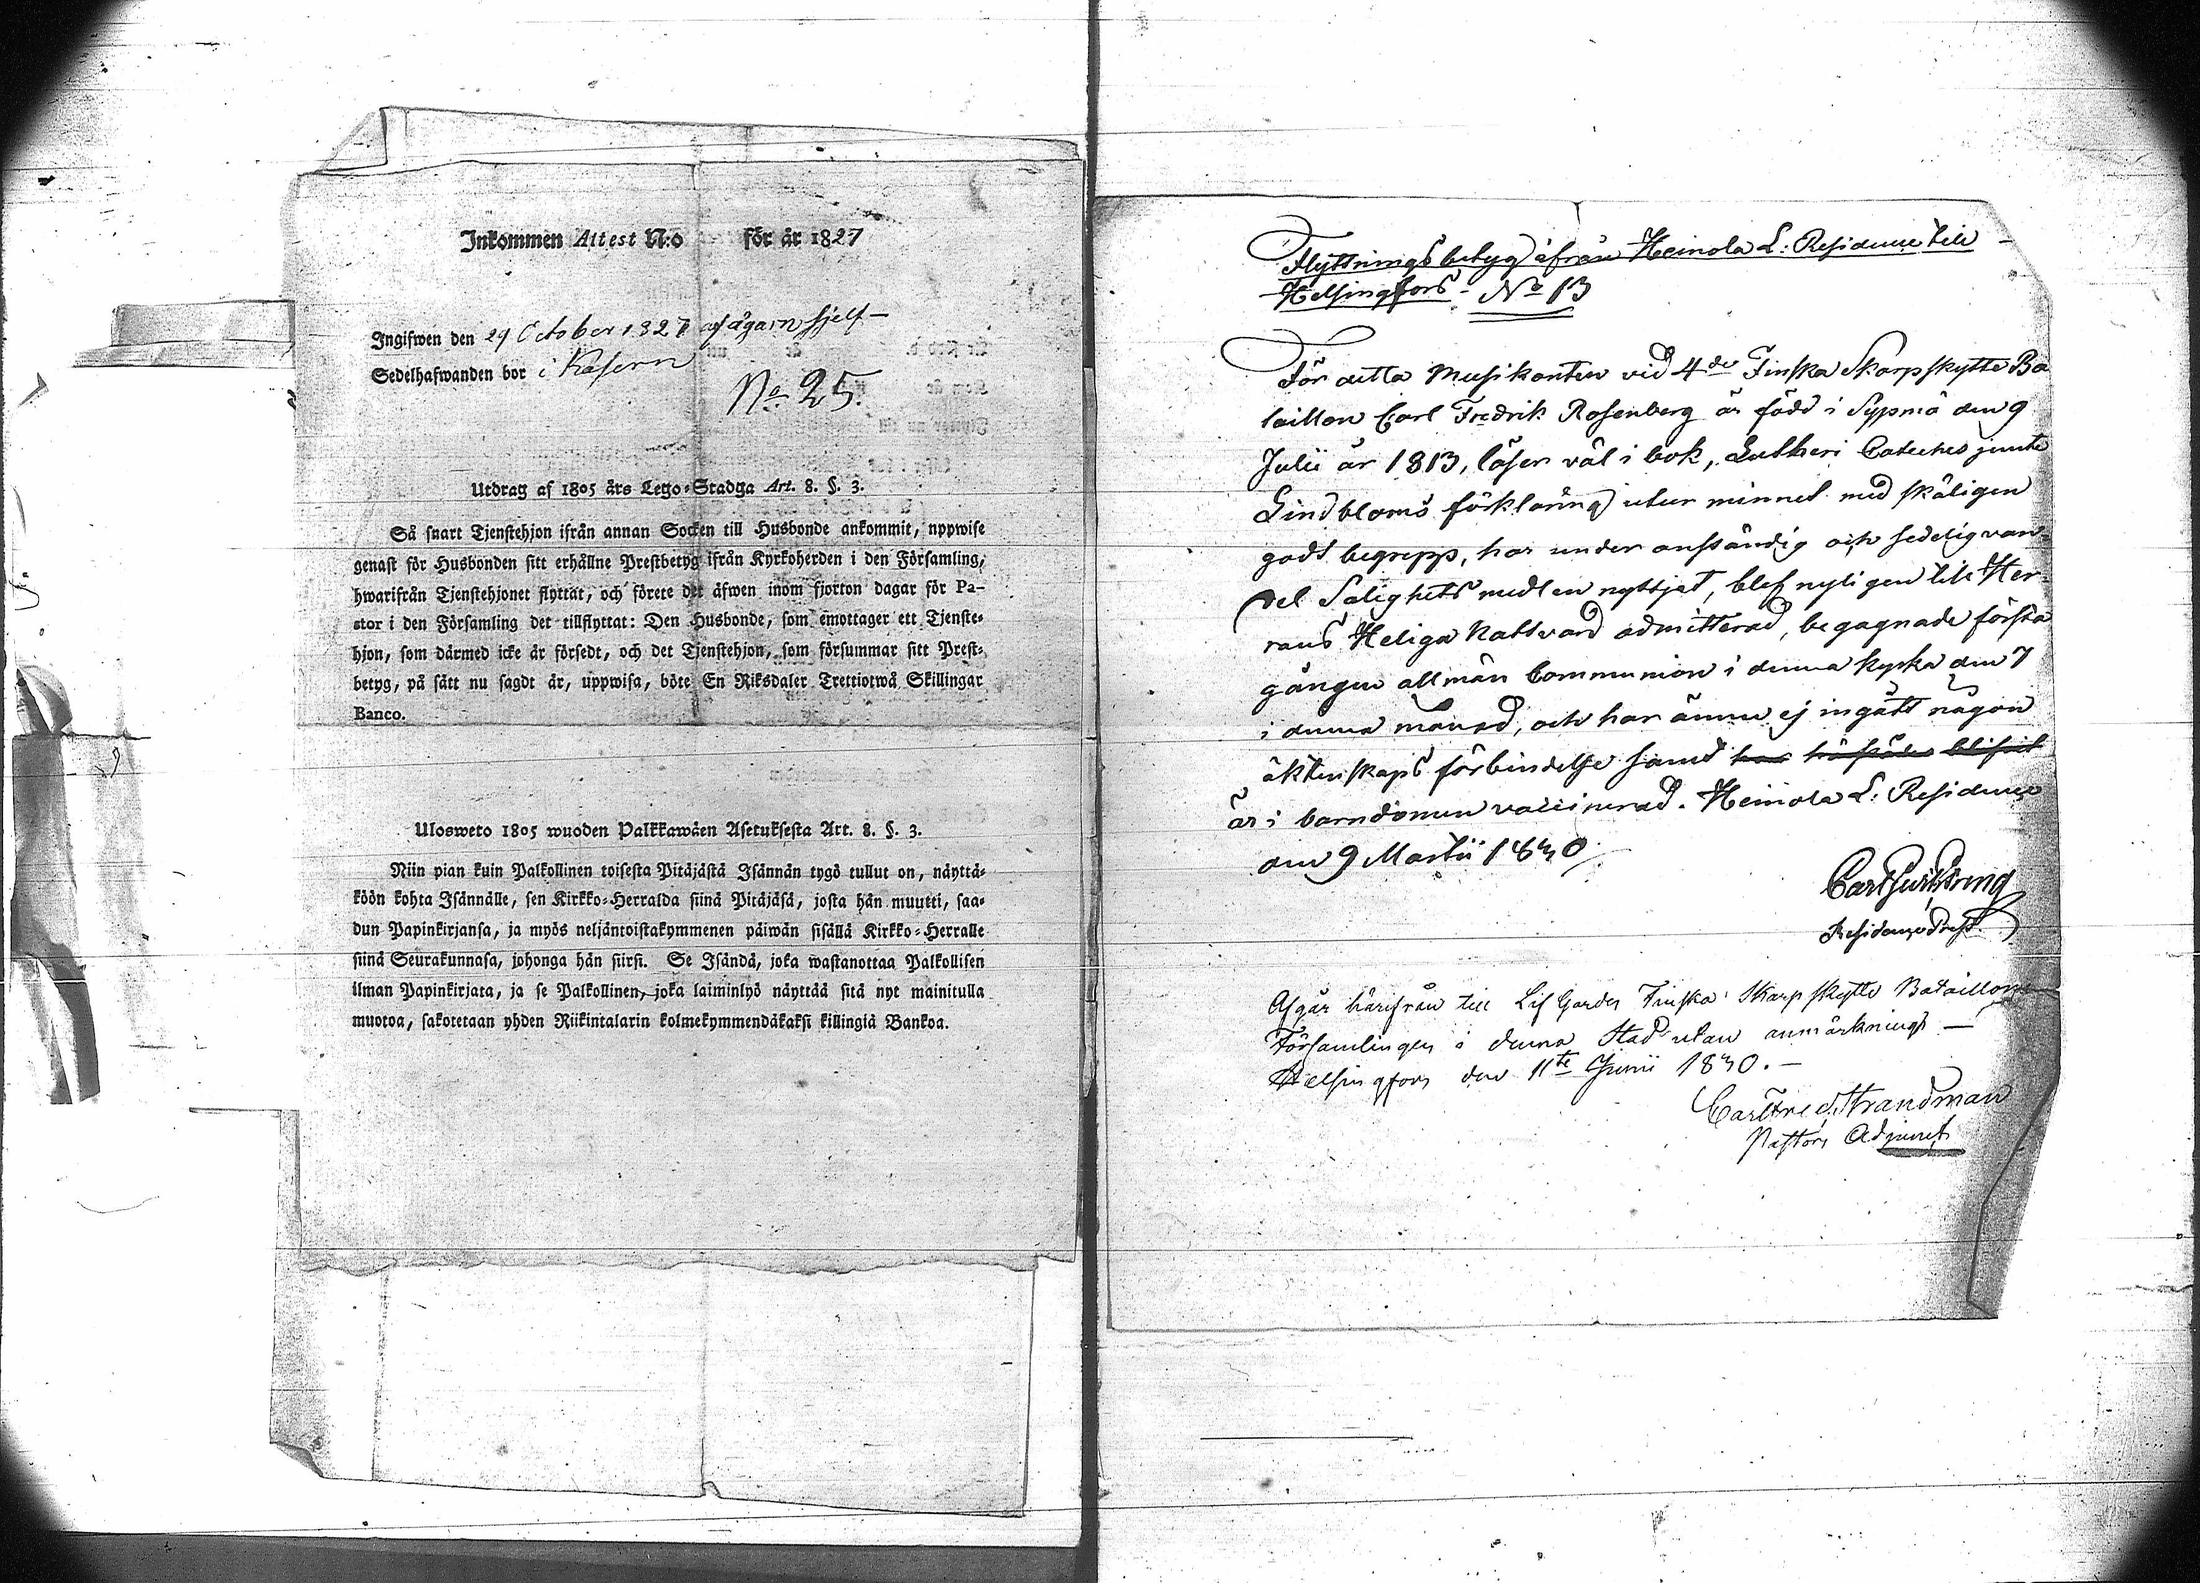 Inkommen Attest N:o för år 1827
Ingifwen den 29 October 1827 af ägarn sjelf –
Sedelhafwanden bor i Kasern
No 25.
Utdrag af 1805 års Lego-Stadga Art. 8. §. 3.
Så snart Tjenstehjon ifrån annan Socken till Husbonde ankommit, uppwise
genast för Husbonden sitt erhållne Prestbetyg ifrån Kyrkoherden i den Församling,
hwarifrån Tjenstehjonet flyttat, och förete det äfwen inom fjorton dagar för Pa-
stor i den Församling det tillflyttat: Den Husbonde, som emottager ett Tjenste-
hjon, som därmed icke är försedt, och det Tjenstehjon, som försummar sitt Prest-
betyg, på sätt nu sagdt är, uppwisa, böte En Riksdaler Trettiotwå Skillingar
Banco.
Ulosweto 1805 wuoden Palkkawäen Asetuksesta Art. 8. §. 3.
Niin pian kuin Palkollinen toisesta Pitäjästä Isännän tygö tullut on, näyttä-
köön kohta Isännälle, sen Kirkko-Herralda siinä Pitäjäsä, josta hän muutti, saa-
dun Papinkirjansa, ja myös neljäntoistakymmenen päiwän sisällä Kirkko-Herralle
siinä Seurakunnasa, johonga hän siirsi. Se Isändä, joka wastanottaa Palkollisen
ilman Papinkirjata, ja se Palkollinen, joka laiminlyö näyttää sitä nyt mainitulla
muotoa, sakotetaan yhden Riikintalarin kolmekymmendäkaksi killingiä Bankoa.
Flyttningsbetyg ifrån Heinola L: Residence till
Helsingfors – No 13
För detta Musikanten vid 4de Finska Skarpskytte Ba
taillon Carl Fredrik Rosenberg är född i Sysmä den 9
Julii år 1813, läser väl i bok, Lutheri Cateches jemte
Lindbloms förklaring utur minnet med skäligen
godt begrepp, har under anständig och sedelig van-
del Salighets medlen nyttjat, blef nyligen till Her-
rans Heliga Nattvard admitterad, begagnade första
gången allmän Communion i denna kyrka den 7
i denna månad, och har ännu ej ingått någon
äktenskaps förbindelse samt
är i barndomen vaccinerad. Heinola L: Residence
den 9 Martii 1830.
Residence Prest.
Afgår härifrån till Lif Gardes Finska Skarpskytte Bataillons
Församlingen i denna Stad utan anmärkning –
Helsingfors den 11te Junii 1830. –
Carl Fred. Strandman
Pastors Adjunct